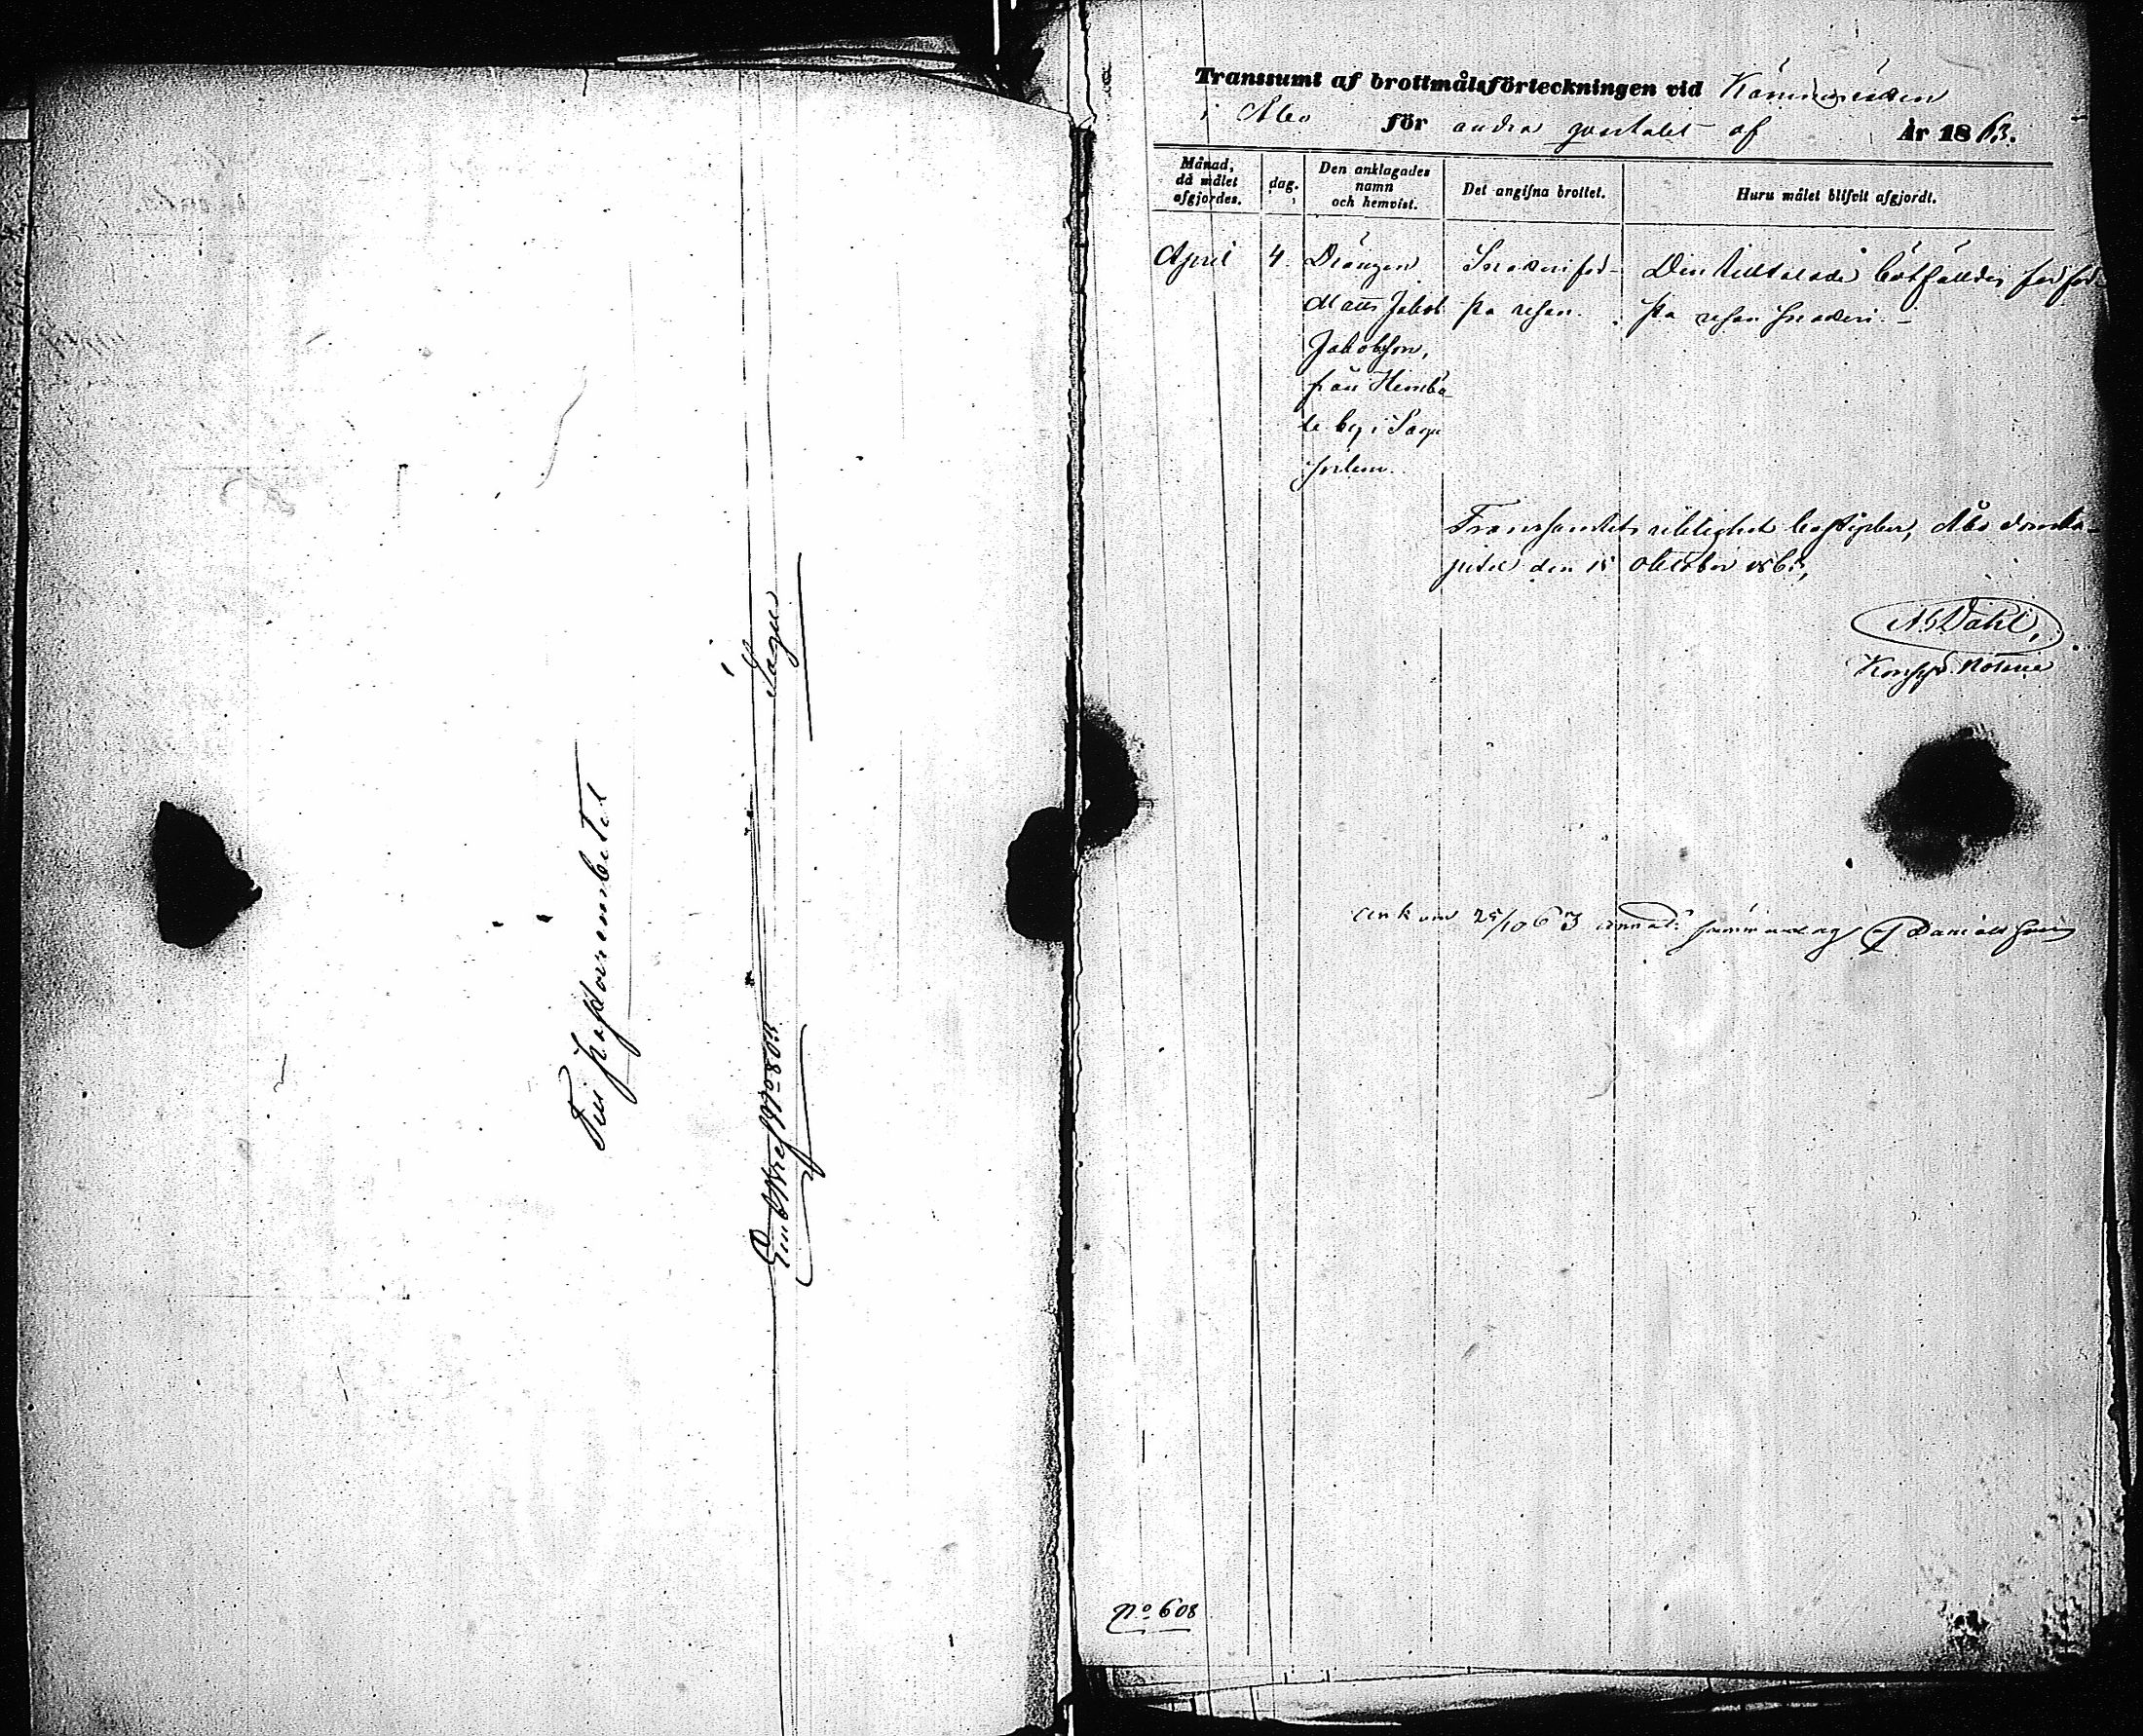 Till Pastorsembetet
i
Sagu
Embtsbref No 808.
Transsumt af brottmålsförteckningen vid Kämnersrätten
i Åbo för andra qvartalet af År 1863.
Månad, då målet afgjordes.
dag.
Den anklagades namn och hemvist.
Det angifna brottet.
Huru målet blifvit afgjordt.
April 4. Drängen
Matts Jakob
Jakobsson,
från Hembö-
le by i Sagu
socken.
Snatteri förs-
ta resan.
Den tilltalade bötfälldes för förs-
ta resan snatteri. -
Transsumtets riktighet bestyrker, Åbo domka-
pitel den 15 Oktober 1863,
Dahl,
Notarie
Ank. 25/10 63 samma dag af Danielsson
No 608